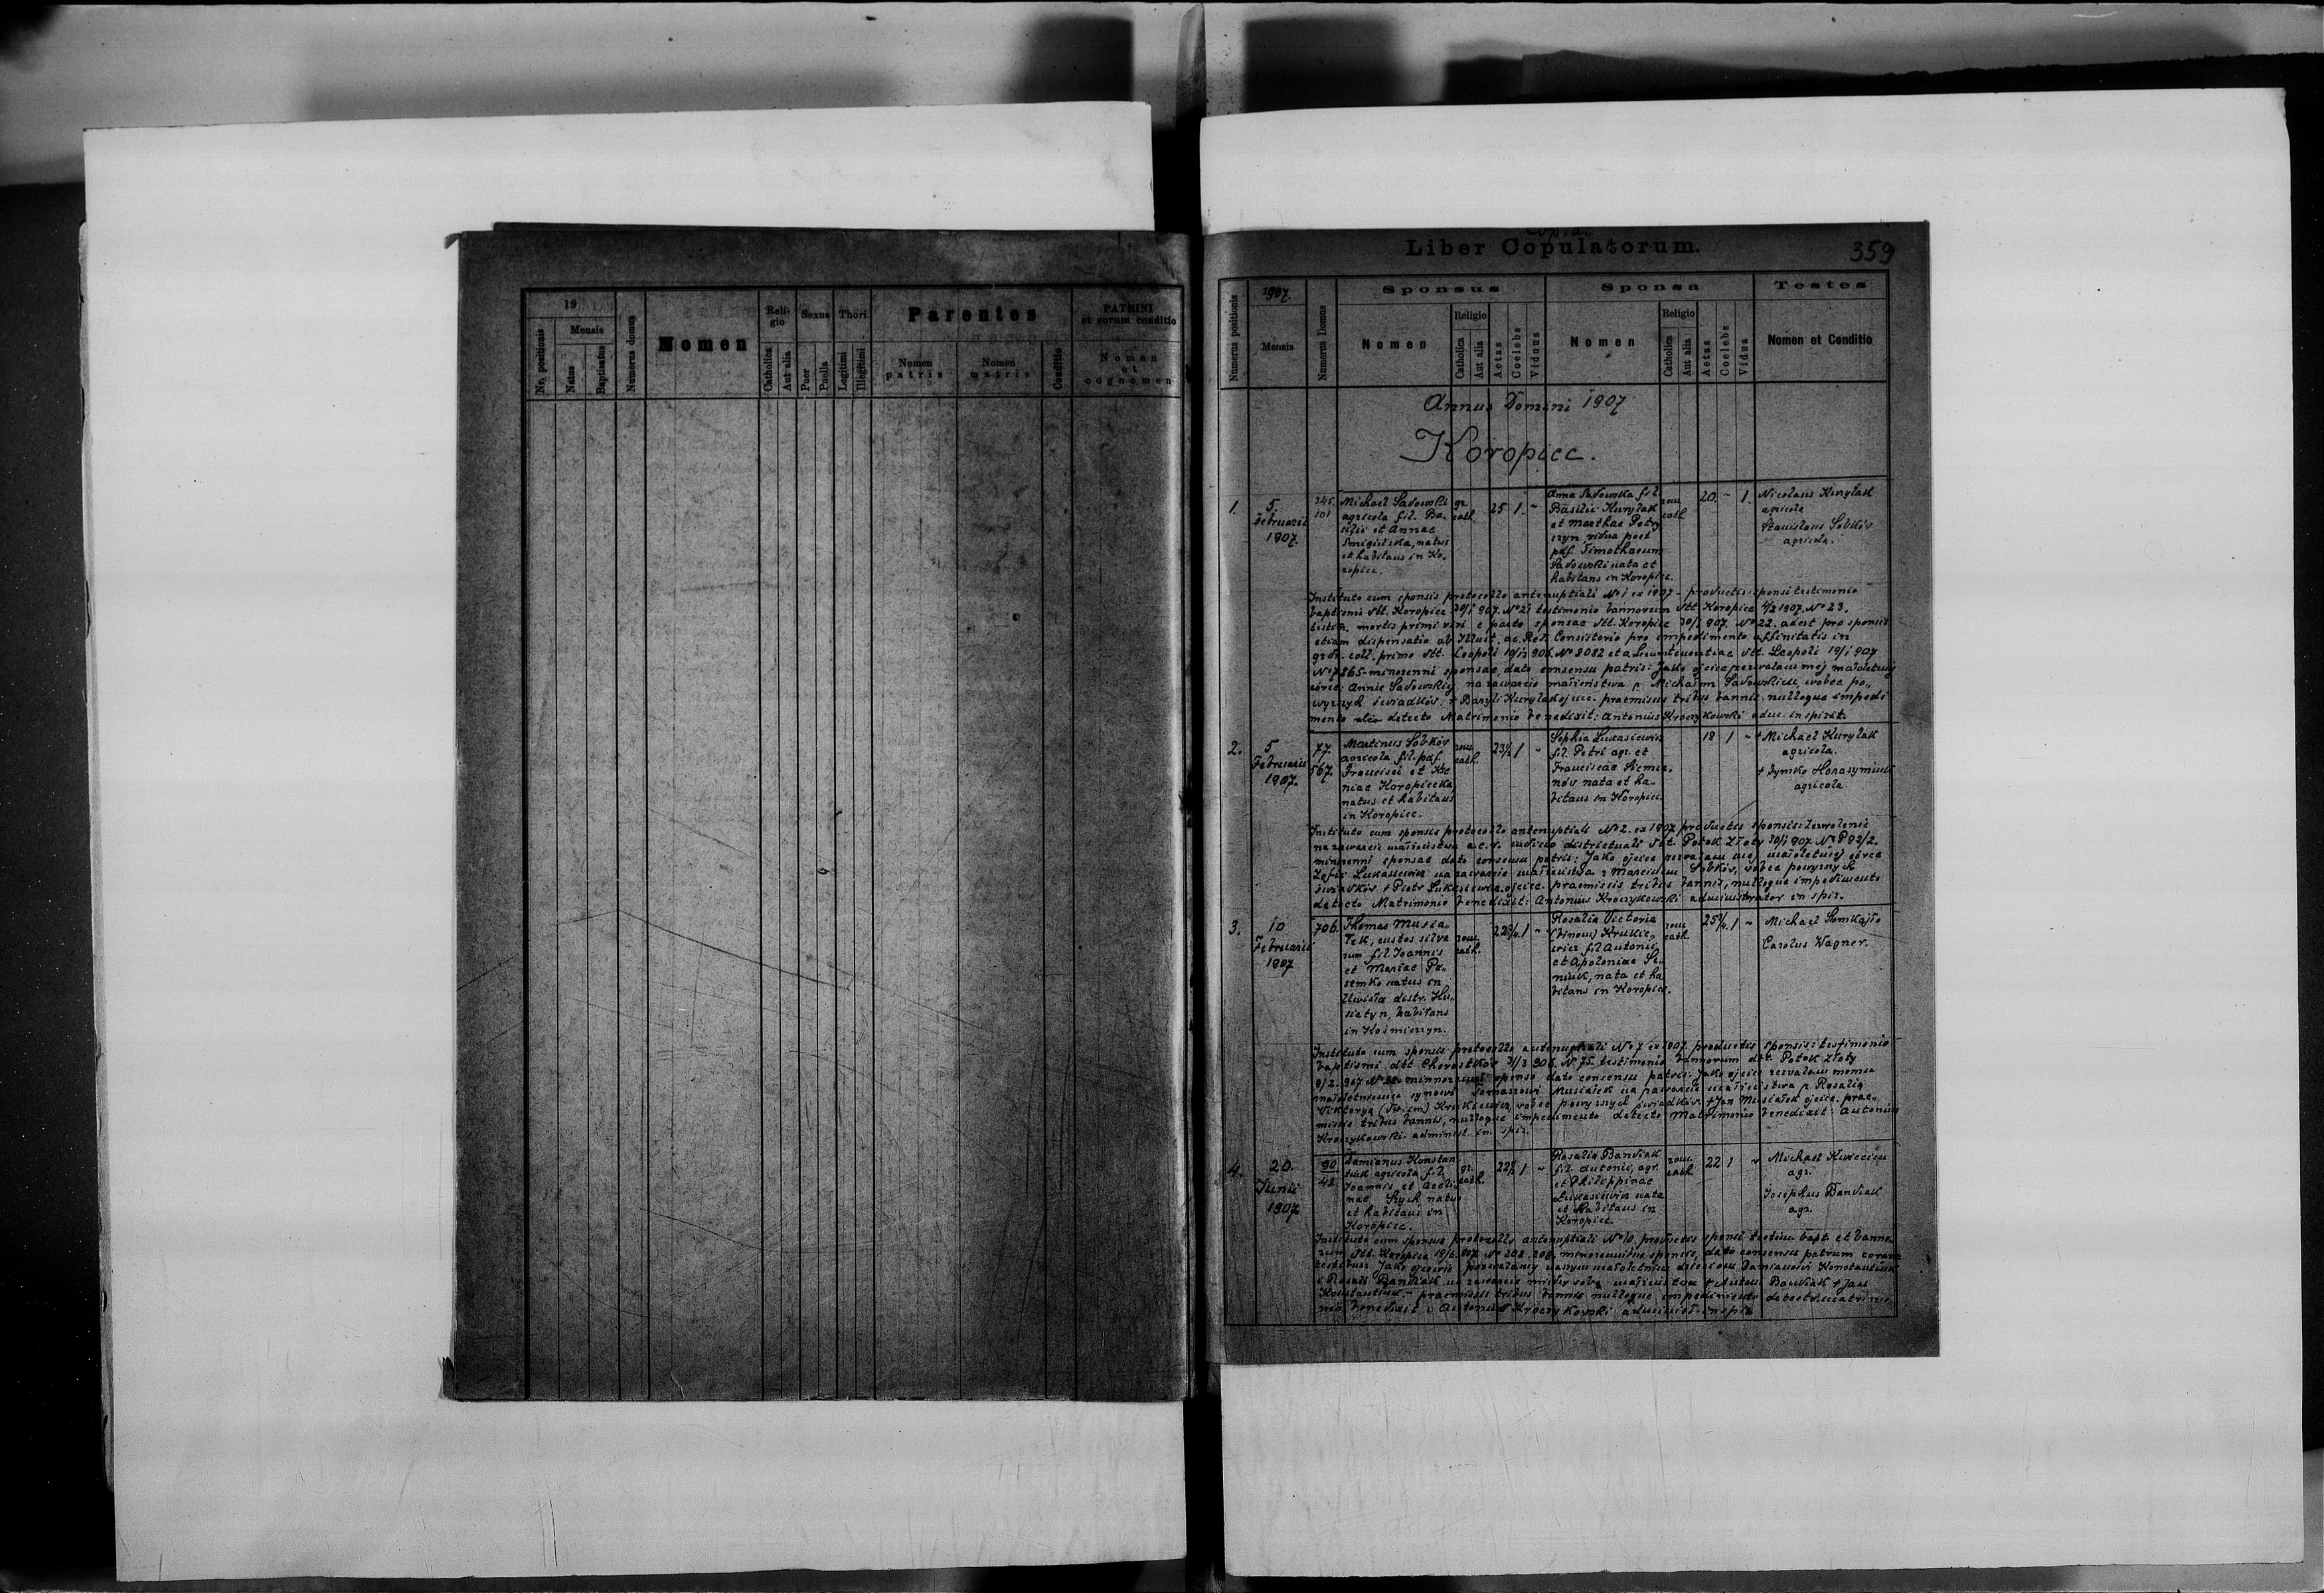 19
Nr. positionis
Mensis
Natus
Baptisatus
Numerus domus
Nomen
Reli-
gio
Catholica
Aut alia
Sexus
Puer
Puella
Thori
Legitimi
Illegitimi
Parentes
Nomen
patris
Nomen
matris
Conditio
PATRINI
et eorum conditio
Nomen
et
cognomen
Copia
Liber Copulatorum.
359
Numerus positionis
1907.
Mensis
Numerus Domus
Sponsus
Nomen
Religio
Catholica
Aut alia
Aetas
Coelebs
Viduus
Sponsa
Nomen
Religio
Catholica
Aut alia
Aetas
Coelebs
Vidua
Testes
Nomen et Conditio
Annus Domini 1907
Koropiec.
1.
5.
Februarii
1907.
345.
101
Michael Sadowski
agricola fil. Ba-
silii et Annae
Smigielska, natus
et habitans in Ko-
ropiec.
gr.
cath.
25 1. -
Anna Sadowska fil.
Basilii Kurylak
et Marthae Petry
szyn vidua post
pdf. Timothaeum
Sadowski nata et
habitans in Koropiec.
rom.
cath.
20. - 1.
Nicolaus Kurylak
agricola
Stanislaus Sobków
agricola.
Instituto cum sponsis protocollo antenuptiali No 1 ex 1907 - productis sponsi testimonio
baptismi dtt. Koropiec 30/1 907. No 21 testimonio bannorum dtt Koropiec 4/2 1907. No 23.
testim. mortis primi viri e parte sponsae dtt. Koropiec 30/1 907. No 22. adest pro sponsis
etiam dispensatio ab Illust. ac Rsd. Consistorio pro impedimento affinitatis in
gradu coll. primo dtt. Leopoli 19/12 906. No 8082 et a Locumtenentiae dtt. Leopoli 19/1 907
minorenni sponsae, dato consensu patris: Jako ojciec zezwalam mej małoletniej
córce: Annie Sadowskiej na zawarcie małżeństwa z Michałem Sadowskim, wobec po-
wyższych świadków. + Bazyli Kurylak ojciec. praemissis tribus bannis nulloque impedi
mento detecto Matrimonio benedixit: Antonius Kroczykowski adm. in spirit.
2.
5
Februarii
1907.
77.
567.
Martinus Sobków
agricola fil. pdf.
Francisci et Xe
niae Koropiecka
natus et habitans
in Koropiec.
rom.
cath.
23½ 1 -
Sophia Lukasiewicz
fil. Petri agr. et
Franciscae Siemia-
nów nata et ha-
bitans in Koropiec.
18 1 -
+ Michael Kurylak
agricola.
+ Dymko Harasymiuk
agricola.
Instituto cum sponsis protocollo antenuptiali No 2. ex 1907, productis sponsis: zezwolenie
na zawarcie małżeństwa a c. r. iudicio districtuali dtt. Potok Złoty 30/1 907. No P 92/2.
minorenni sponsae dato consensu patris: Jako ojciec zezwalam mej małoletniej córce
Zofii Lukasiewicz na zawarcie małżeństwa z Marcinem Sobków, wobec powyższych
świadków + Piotr Lukasiewicz ojciec. praemissis tribus bannis, nulloque impedimento
detecto Matrimonio benedixit: Antonius Kroczykowski administrator in spir.
3.
10
Februarii
1907
706.
Thomas Musia-
łek, custos silva
rum fil. Joannis
et Mariae Pa-
szemko natus in
Uwisła distr. Hu-
siatyn, habitans
in Kośmierzyn.
rom.
cath.
22¾ 1 -
Rosalia Victoria
(binom) Krukie-
wicz fil. Antonii
et Apoloniae Se-
niuk, nata et ha
bitans in Koropiec.
rom.
cath.
25¾ 1 -
Michael Somkajło
Carolus Wagner.
Instituto cum sponsis protocollo antenuptiali No 7 ex 1907. productis sponsis: testimonio
baptismi dtt Chorostków 31/3 906. No 75. testimonio bannorum dtt. Potok Złoty
9/2. 907 minorenni sponso dato consensu patris: Jako ojciec zezwalam memu
małoletniemu synowi Tomaszowi Musiałek na zawarcie małżeństwa z Rosalią
Wiktoryą (dw. im.) Krukiewicz, wobec powyższych świadków. + Jan Musiałek ojciec. prae-
missis tribus bannis, nulloque impedimento detecto Matrimonio benedixit: Antonius
Kroczykowski administ. in spir.
4.
20.
Junii
1907
90
42
Damianus Konstan
tiuk agricola fil.
Joannis et Aceli-
nae Szych natus
et habitans in
Koropiec.
gr.
cath.
22½ 1 -
Rosalia Bandiak
fil. Antonii, agr.
et Philippinae
Lukasiewicz nata
et habitans in
Koropiec.
rom.
cath.
22 1 -
Michael Kwiecień
agr.
Josephus Bandiak
agr.
Instituto cum sponsis protocollo antenuptiali No 10. productis sponsi testim. bapt. et banno-
rum dtt. Koropiec 19/6. 907. No 202. 208. minorennibus sponsis, dato consensu patrum coram
testibus: Jako ojcowie pozwalamy naszym małoletnim dzieciom Damianowi Konstantiuk
i Rosali Bandiak na zawarcie między sobą małżeństwa + Antoni Bandiak + Jan
Konstantiuk - praemissis tribus bannis nulloque impedimento detecto matrimo-
nio benedixit: Antonius Kroczykowski administ. in spir.